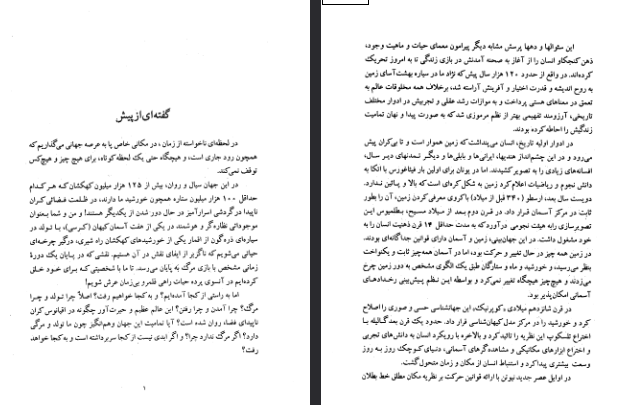 گفته‌ای از پیش
در لحظه‌ای ناخواسته از زمان، در مکانی خاص پا به عرصه جهانی می‌گذاریم که
همچون رود جاری است، و هیچگاه حتی یک لحظه کوتاه، برای هیچ چیز و هیچ‌کس
توقف نمی‌کند.
در این جهان سیال و روان، بیش از ۱۲۵ هزار میلیون کهکشان که هر کدام
حداقل ۱۰۰ هزار میلیون ستاره همچون خورشید ما دارند، در ظلمت فضای بیکران
ناپیدا در گردشی اسرارآمیز در حال دور شدن از یکدیگر هستند! و من و شما بعنوان
موجوداتی نظاره‌گر و هوشمند در یکی از هفت آسمان کیهان (کرسی)، با تولد در
سیاره‌ای ذره‌گون از اقمار یکی از خورشیدهای کهکشان راه شیری، درگیر چرخه‌ای
حیاتی می‌شویم که ناگزیر از ایفای نقش در آن هستیم. نقشی که در پایان یک دورهٔ
زمانی مشخص با بازی مرگ به پایان می‌رسد. تا ما با شخصیتی که برای خود خلق
کرده‌ایم در آنسوی پرده حیات راهی قلمرو بی‌زمان عرش شویم!
اما به راستی از کجا آمده‌ایم؟ و به کجا خواهیم رفت؟ اصلاً چرا تولد و چرا
مرگ؟ چرا آمدن و چرا رفتن؟ این عالم عظیم و حیرت‌آور چگونه در اقیانوس کران
ناپیدای فضاء روان شده است؟ آیا تمامیت این جهان وهم‌انگیز چون ما تولد و مرگی
دارد؟ اگر مرگ ندارد چرا؟ و اگر ابدی نیست از کجا سر برداشته است و به کجا خواهد
رفت؟
۱
این سئوالها و دهها پرسش مشابه دیگر پیرامون معمای حیات و ماهیت وجود،
ذهن کنجکاو انسان را از آغاز به صحنه آمدنش در بازی زندگی تا به امروز تحریک
کرده‌اند. در واقع از حدود ۱۲۰ هزار سال پیش که نژاد ما در سیاره بهشت‌آسای زمین
به روح اندیشه و قدرت اختیار و آفرینش آراسته شد، برخلاف همه مخلوقات عالم به
تعمق در معناهای هستی پرداخت و به موازات رشد عقلی و تجربیش در ادوار مختلف
تاریخی، آرزومند تفهیمی بهتر از نظم مرموزی شد که به صورت پیدا و نهان تمامیت
زندگیش را احاطه کرده بودند.
در ادوار اولیه تاریخ، انسان می‌پنداشت که زمین هموار است و تا بی‌کران پیش
می‌رود و در این چشم‌انداز هندیها، ایرانی‌ها و بابلی‌ها و دیگر تمدنهای دیر سال،
افسانه‌های زیادی را به تصویر کشیدند. اما در یونان برای اولین بار فیثاغورس با اتکا به
دانش نجوم و ریاضیات اعلام کرد زمین به شکل کره‌ای است که بالا و پائین ندارد.
دویست سال بعد، ارسطو (۳۴۰ قبل از میلاد) با کروی معرفی کردن زمین، آن را بطور
ثابت در مرکز آسمان قرار داد. در قرن دوم بعد از میلاد مسیح، بطلمیوس این
تصویرسازی را به هیئت نجومی درآورد که به مدت حداقل ۱۴ قرن ذهنیت انسان را به
خود مشغول داشت. در این جهان‌بینی، زمین و آسمان دارای قوانین جداگانه‌ای بودند.
در زمین همه چیز در حال تغییر و حرکت بود اما در آسمان همه چیز ثابت و یکنواخت
بنظر می‌رسید، و خورشید و ماه و ستارگان طبق یک الگوی مشخص به دور زمین چرخ
می‌زدند و هیچ چیز هیچگاه تغییر نمی‌کرد و بواسطه این نظم پیش‌بینی رخدادهای
آسمانی امکان‌پذیر بود.
در قرن شانزدهم میلادی، کوپرنیک، این جهانشناسی حسی و صوری را اصلاح
کرد و خورشید را در مرکز مدل کیهان‌شناسی قرار داد. حدود یک قرن بعد گالیله با
اختراع تلسکوپ این نظریه را تائید کرد و بالاخره با رویکرد انسان به دانش‌های تجربی
و اختراع ابزارهای مکانیکی و مشاهده‌گرهای آسمانی، دنیای کوچک روز به روز
وسعت بیشتری پیدا کرد و استنباط انسان از مکان و زمان متحول گشت.
در اوایل عصر جدید نیوتن با ارائه قوانین حرکت بر نظریه مکان مطلق خط بطلان